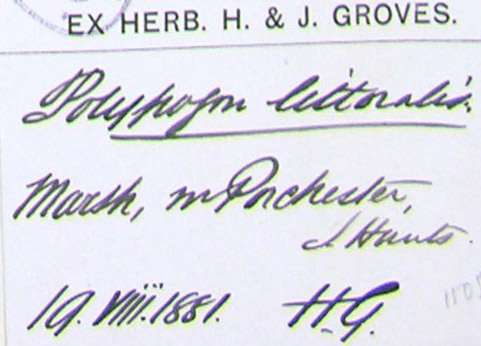 EX HERB. H. & J. GROVES.
Polypogon littoralis.
Marsh, nr Porchester,
S. Hants.
19.VIII.1881. H.G.